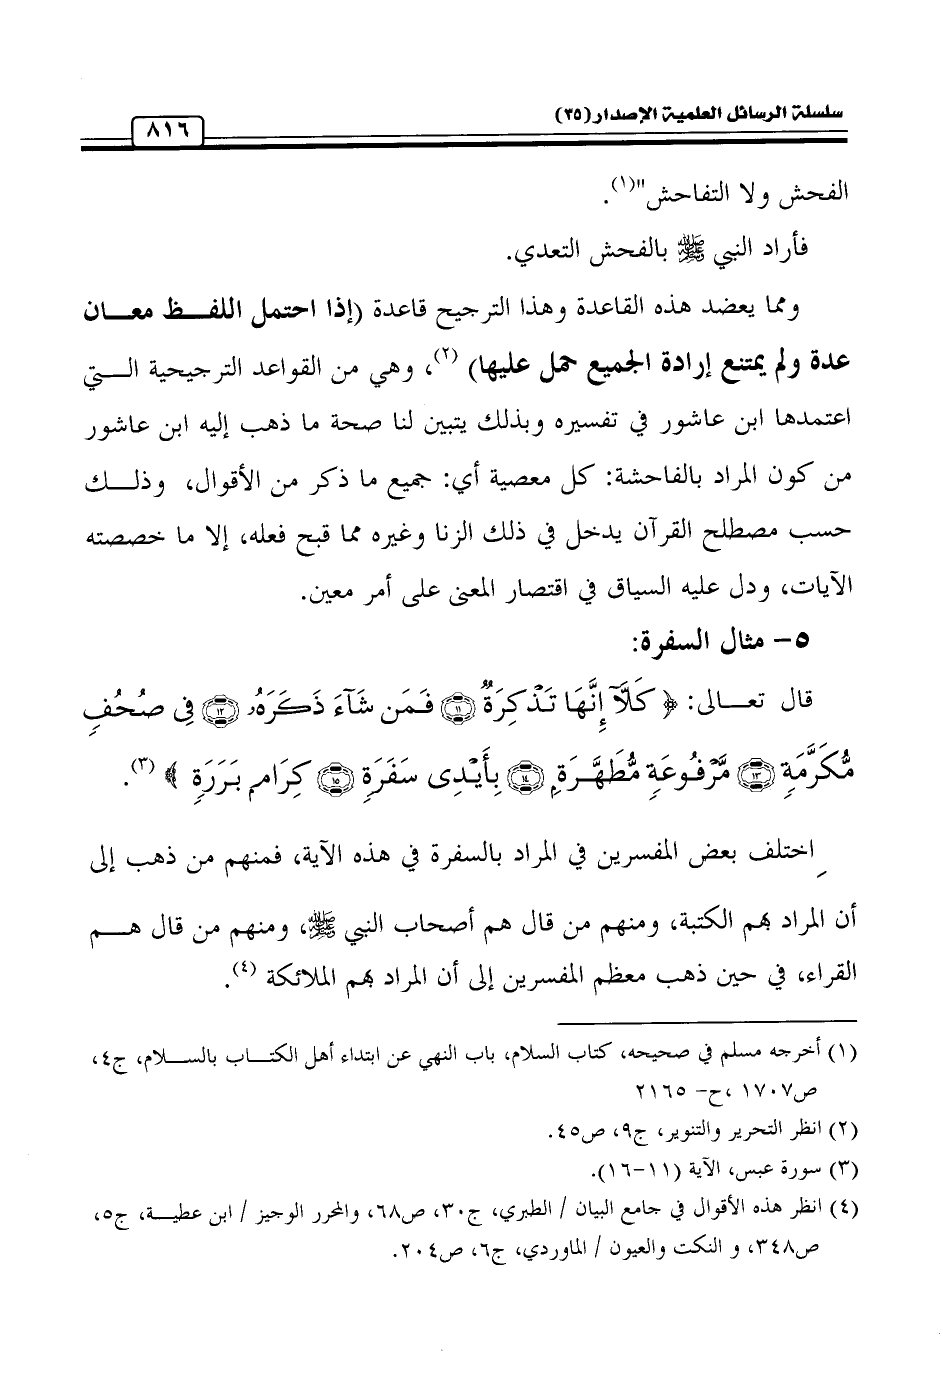 سلسلة الرسائل العلمية الإصدار (٣٥)
٨١٦
الفحش ولا التفاحش"(١).
فأراد النبي ﷺ بالفحش التعدي.
ومما يعضد هذه القاعدة وهذا الترجيح قاعدة (إذا احتمل اللفظ معان
عدة ولم يمتنع إرادة الجميع حمل عليها) (٢)، وهي من القواعد الترجيحية التي
اعتمدها ابن عاشور في تفسيره وبذلك يتبين لنا صحة ما ذهب إليه ابن عاشور
من كون المراد بالفاحشة: كل معصية أي: جميع ما ذكر من الأقوال، وذلك
حسب مصطلح القرآن يدخل في ذلك الزنا وغيره مما قبح فعله، إلا ما خصصته
الآيات، ودل عليه السياق في اقتصار المعنى على أمر معين.
٥- مثال السفرة:
قال تعالى: ﴿ كَلَّآ إِنَّهَا تَذْكِرَةٌ ۝١١ فَمَن شَآءَ ذَكَرَهُۥ ۝١٢ فِى صُحُفٍ
مُّكَرَّمَةٍ ۝١٣ مَّرْفُوعَةٍ مُّطَهَّرَةٍۭ ۝١٤ بِأَيْدِى سَفَرَةٍ ۝١٥ كِرَامٍۭ بَرَرَةٍ ﴾ (٣).
اختلف بعض المفسرين في المراد بالسفرة في هذه الآية، فمنهم من ذهب إلى
أن المراد بهم الكتبة، ومنهم من قال هم أصحاب النبي ﷺ، ومنهم من قال هم
القراء، في حين ذهب معظم المفسرين إلى أن المراد بهم الملائكة (٤).
(١) أخرجه مسلم في صحيحه، كتاب السلام، باب النهي عن ابتداء أهل الكتاب بالسلام، ج٤،
ص١٧٠٧ ،ح- ٢١٦٥
(٢) انظر التحرير والتنوير، ج٩، ص٤٥.
(٣) سورة عبس، الآية (١١-١٦).
(٤) انظر هذه الأقوال في جامع البيان / الطبري، ج٣٠، ص٦٨، والمحرر الوجيز / ابن عطية، ج٥،
ص٣٤٨، و النكت والعيون / الماوردي، ج٦، ص٢٠٤.